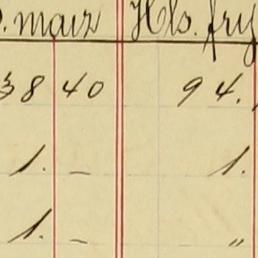 maiz Hls. frij
38 40 94.
1. — 1.
1. — "